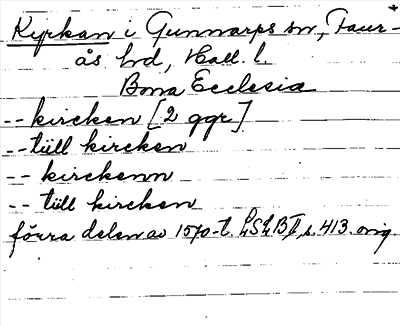 Kyrkan i Gunnarps sn, Faur-
ås hd, Hall. l.
Bona Ecclesia
-- kircken [2 ggr]
-- tiill kircken
-- kirckenn
-- tüll kircken
förra delen av 1570-t. s. 413. orig.